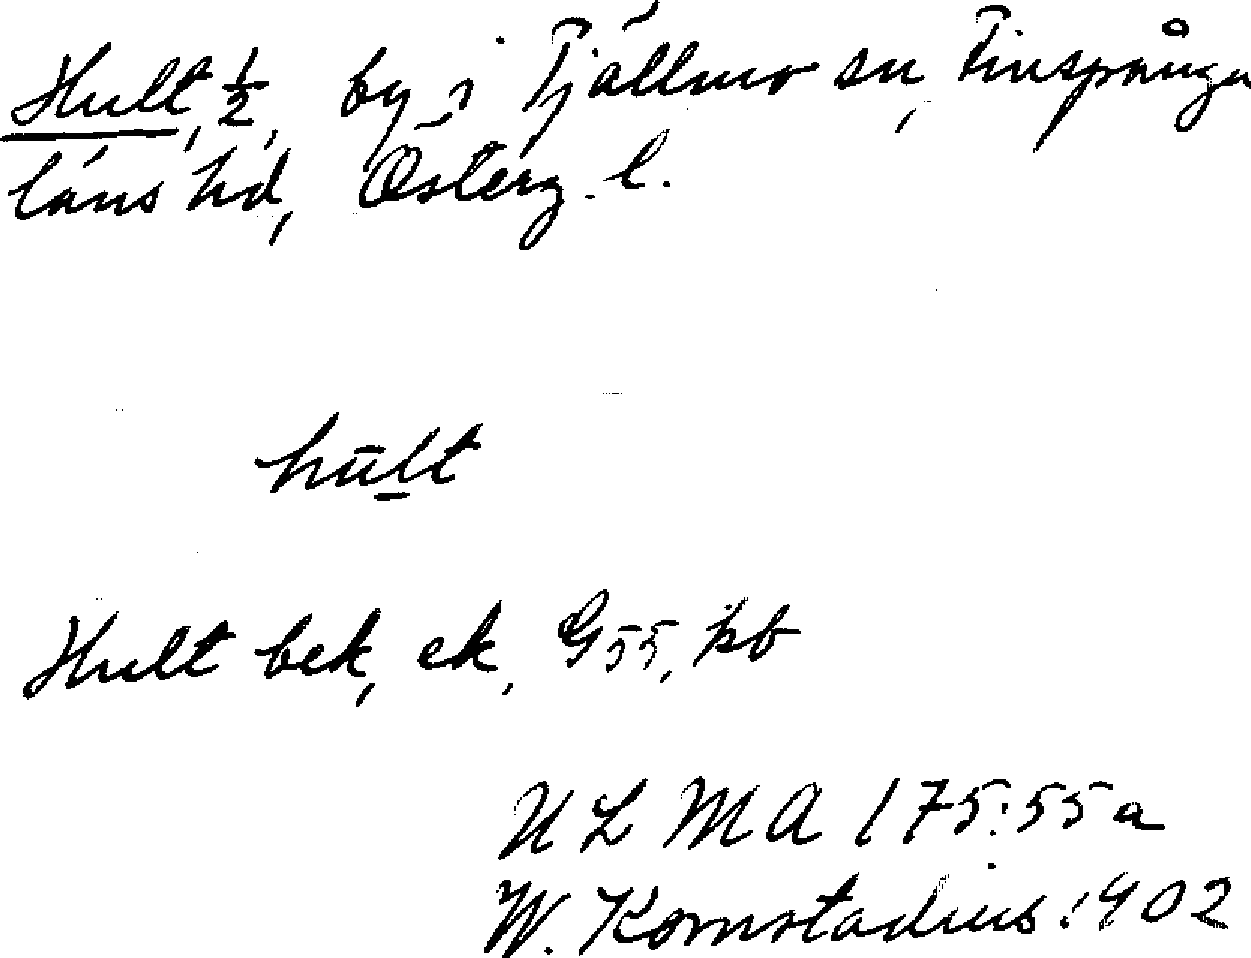 Hult, ½, by i Tjällmo sn, Finspånga
läns hd, Österg. l.
hūlt
Hult bek, ek, G 55, kb
ULMA 175:55a
W. Kornstadius. 1902